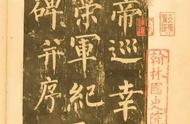 帝巡幸
策軍紀
碑并序
翰林國史院